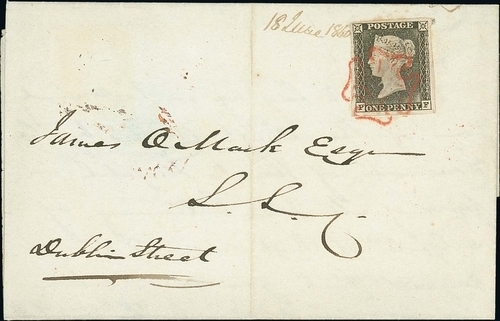 18 June 1840
POSTAGE
ONE PENNY
F F
James O Mark Esqr
S. S. C.
Dublin Street